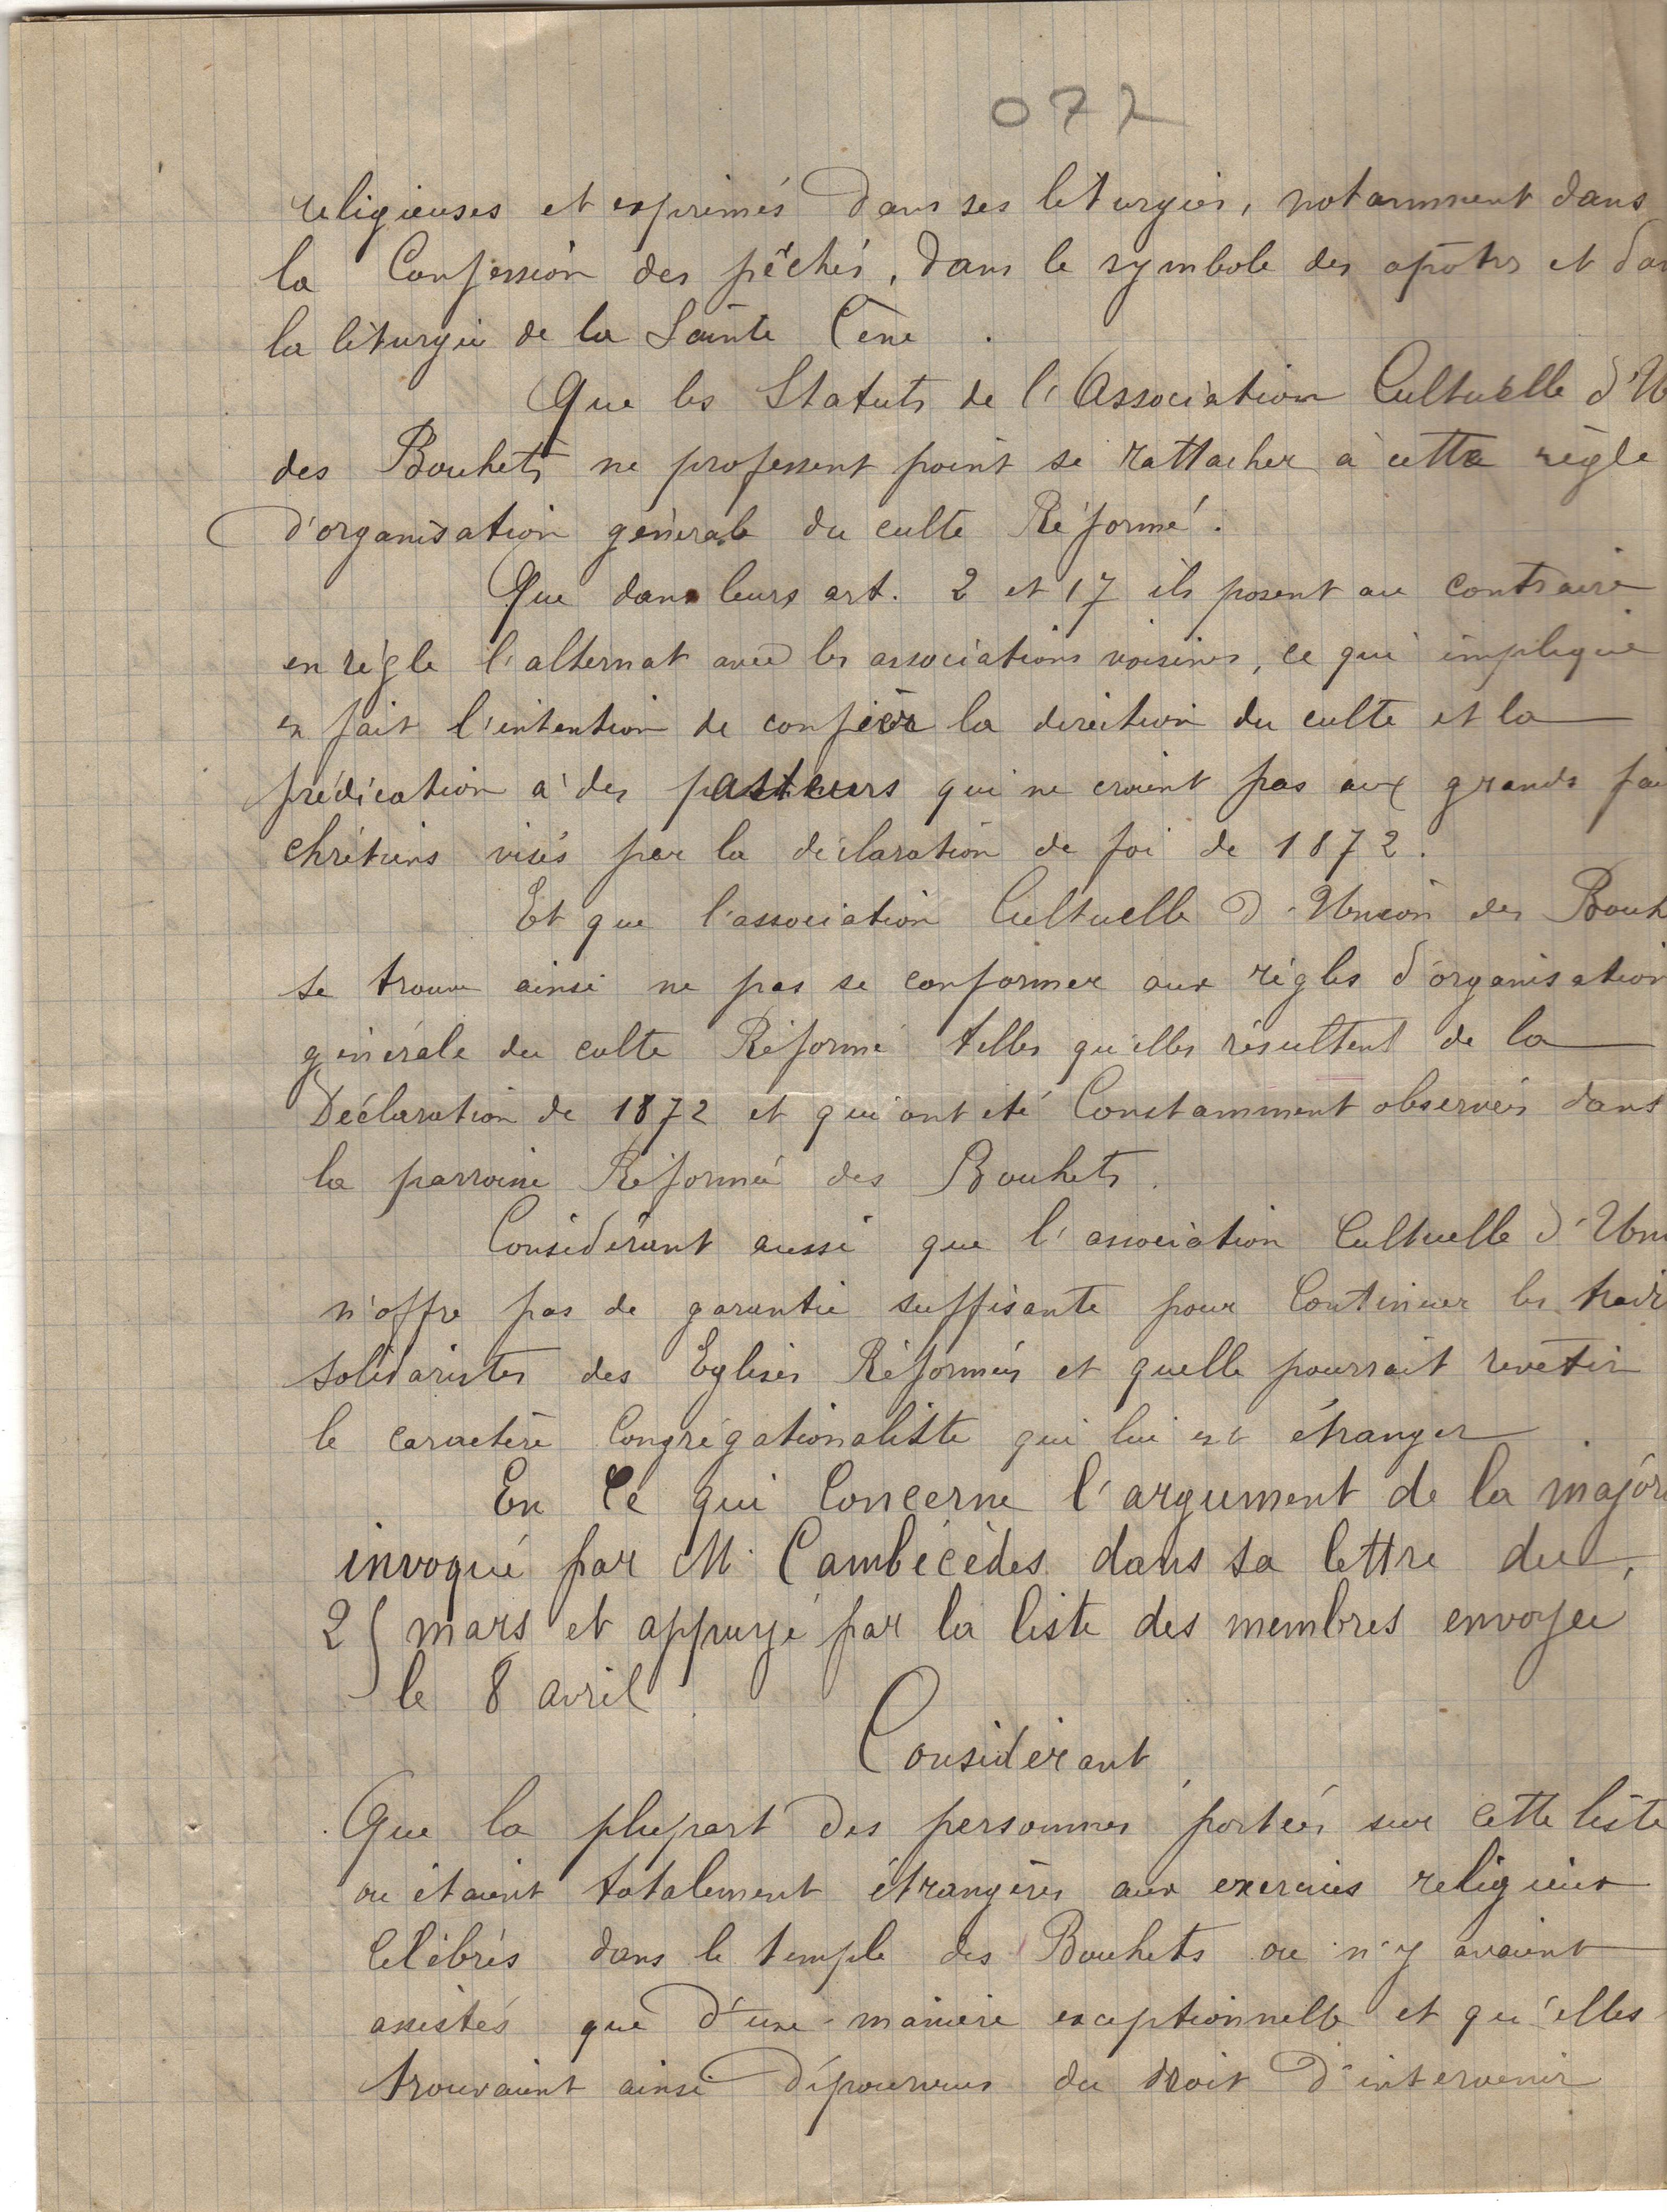 072
religieuses et exprimés dans ses liturgies, notamment dans
la Confession des péchés, dans le symbole des apôtres et dan
la liturgie de la Sainte Cène.
Que les Statuts de l'Association Cultuelle d'U
des Bouhets ne professent point se rattacher à cette règle
d'organisation générale du culte Réformé.
Que dans leurs art. 2 et 17 ils posent au contraire
en règle l'alternat avec les associations voisines, ce qui implique
en fait l'intention de confier la direction du culte et la
prédication à des pasteurs qui ne croient pas aux grands fai
chrétiens visés par la déclaration de foi de 1872.
Et que l'association Cultuelle d'Union des Bouh
se trouve ainsi ne pas se conformer aux règles d'organisation
générale du culte Réformé telles qu'elles résultent de la
Déclaration de 1872 et qui ont été Constamment observées dans
la parroisse Réformée des Bouhets.
Considérant aussi que l'association Cultuelle d'Un
n'offre pas de garantie suffisante pour Continuer les
solidaristes des Eglises Réformées et quelle pourrait revêtir
le caractère Congrégationaliste qui lui est étranger
En Ce qui Concerne l'argument de la majori
invoqué par M. Cambécèdes dans sa lettre du
25 mars et appuyé par la liste des membres envoyée
le 8 avril
Considérant
Que la plupart des personnes portées sur cette liste
ou étaient totalement étrangères aux exercices religieux
Célébrés dans le temple des Bouhets ou n'y avaient
assistés que d'une manière exceptionnelle et qu'elles
trouvaient ainsi dépourvues du droit d'intervenir